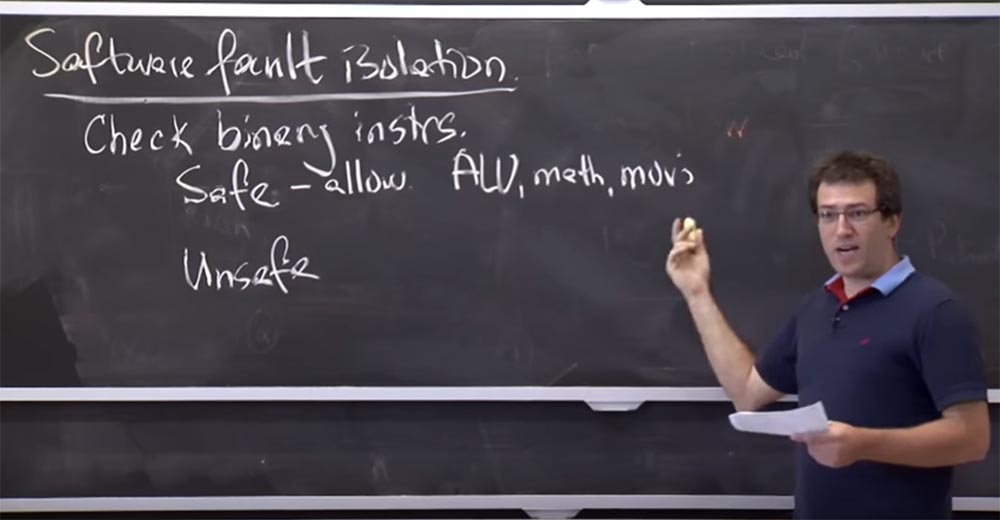 Software fault isolation.
Check binary instrs.
Safe – allow ALU, math, mov's
Unsafe